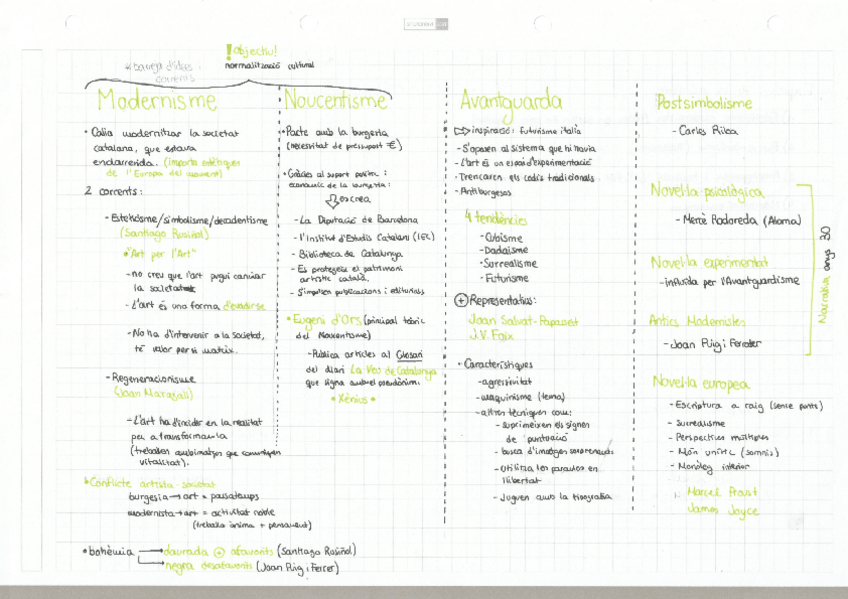 ! objectiu!
normalització cultural
* barreja d'idees i
corrents
Modernisme
• Calia modernitzar la societat
catalana, que estava
endarrerida. (importa estètiques
de l'Europa del moment)
2 corrents:
- Esteticisme/simbolisme/decadentisme
(Santiago Rusiñol)
• "Art per l'Art"
- no creu que l'art pugui canviar
la societat
- L'art és una forma d'evadir-se
- No ha d'intervenir a la societat,
té valor per si mateix.
- Regeneracionisme
(Joan Maragall)
- L'art ha d'incidir en la realitat
per a transformar-la
(treballen amb imatges que comuniquen
vitalitat).
Conflicte artista-societat
burgesia → art = passatemps
modernista → art = activitat noble
(treballa ànima + pensament)
• bohèmia → daurada + afavorits (Santiago Rusiñol)
→ negra desafavorits (Joan Puig i Ferrer)
Noucentisme
• Pacte amb la burgesia
(necessitat de pressupost €)
• Gràcies al suport polític i
econòmic de la burgesia:
es crea
- La Diputació de Barcelona
- l'Institut d'Estudis Catalans (IEC)
- Biblioteca de Catalunya
- Es protegeix el patrimoni
artístic català.
- S'impulsen publicacions i editorials
• Eugeni d'Ors (principal teòric
del Noucentisme)
- Publica articles al Glosari
del diari La Veu de Catalunya
que signa amb el pseudònim.
• Xènius •
Avantguarda
inspiració: futurisme italià
- S'oposen al sistema que hi havia
- L'art és un espai d'experimentació
- Trencaren els codis tradicionals
- Antiburgesos
4 tendències
- Cubisme
- Dadaisme
- Surrealisme
- Futurisme
+ Representatius:
Joan Salvat-Papasseit
J.V. Foix
• Característiques
- agressivitat
- maquinisme (tema)
- altres tècniques com:
- suprimeixen els signes
de puntuació
- busca d'imatges sorprenents
- Utilitza les paraules en
llibertat
- Juguen amb la tipografia
Postsimbolisme
- Carles Riba
Novel·la psicològica
- Mercè Rodoreda (Aloma)
Novel·la experimental
- influïda per l'Avantguardisme
Antics Modernistes
- Joan Puig i Ferreter
Narrativa anys 30
Novel·la europea
- Escriptura a raig (sense punts)
- Surrealisme
- Perspectives múltiples
- Món oníric (somnis)
- Monòleg interior
Marcel Proust
James Joyce